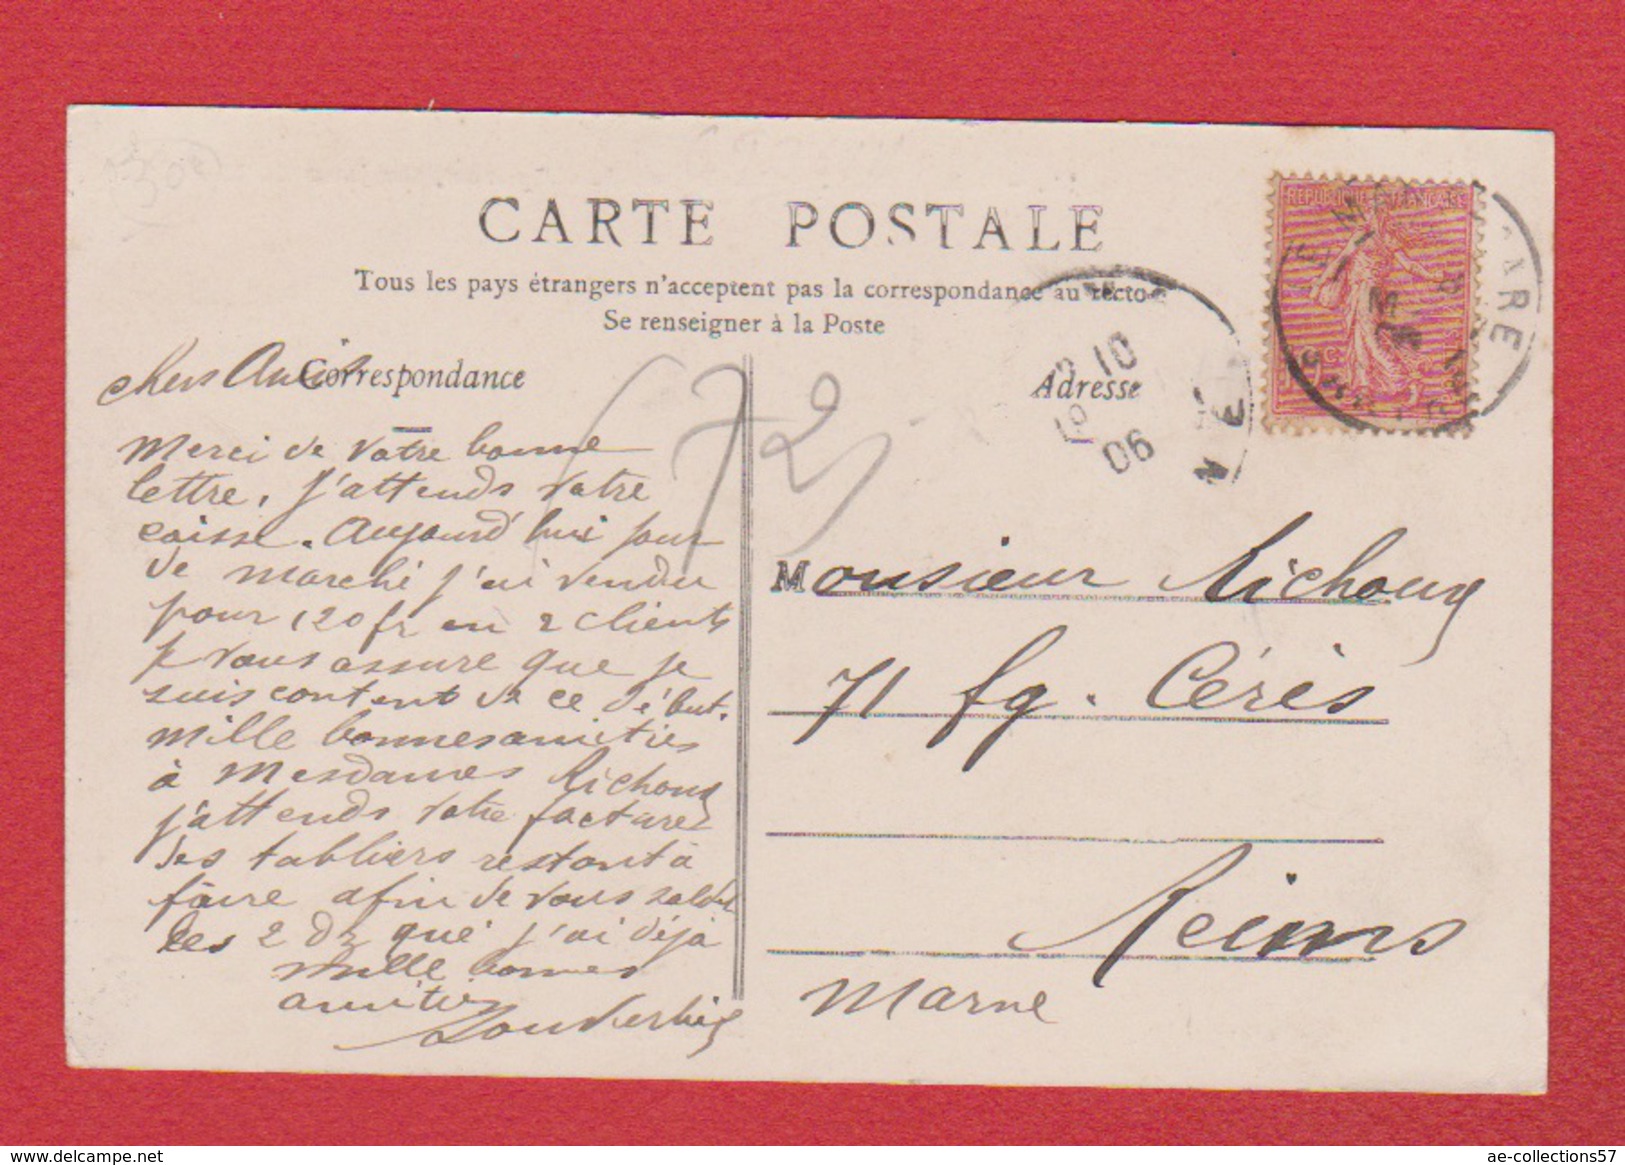 CARTE POSTALE
Tous les pays étrangers n'acceptent pas la correspondance au recto
Se renseigner à la Poste
Correspondance
Adresse
REPUBLIQUE FRANÇAISE
10 c.
GARE
10
06
NE
(72)
chers Amis
Merci de votre bonne
lettre, j'attends votre
caisse. Aujourd'hui jour
de marché j'ai vendu
pour 120 fr en 2 clients
je vous assure que je
suis content de ce début.
Mille bonnes amitiés
à Mesdames Richoux
j'attends votre facture
des tabliers restant à
faire afin de vous solder
les 2 Dz que j'ai déjà
Mille bonnes
amitiés
Monsieur Richoux
71 fg. Cérès
Reims
Marne
ae-collections57
www.delcampe.net